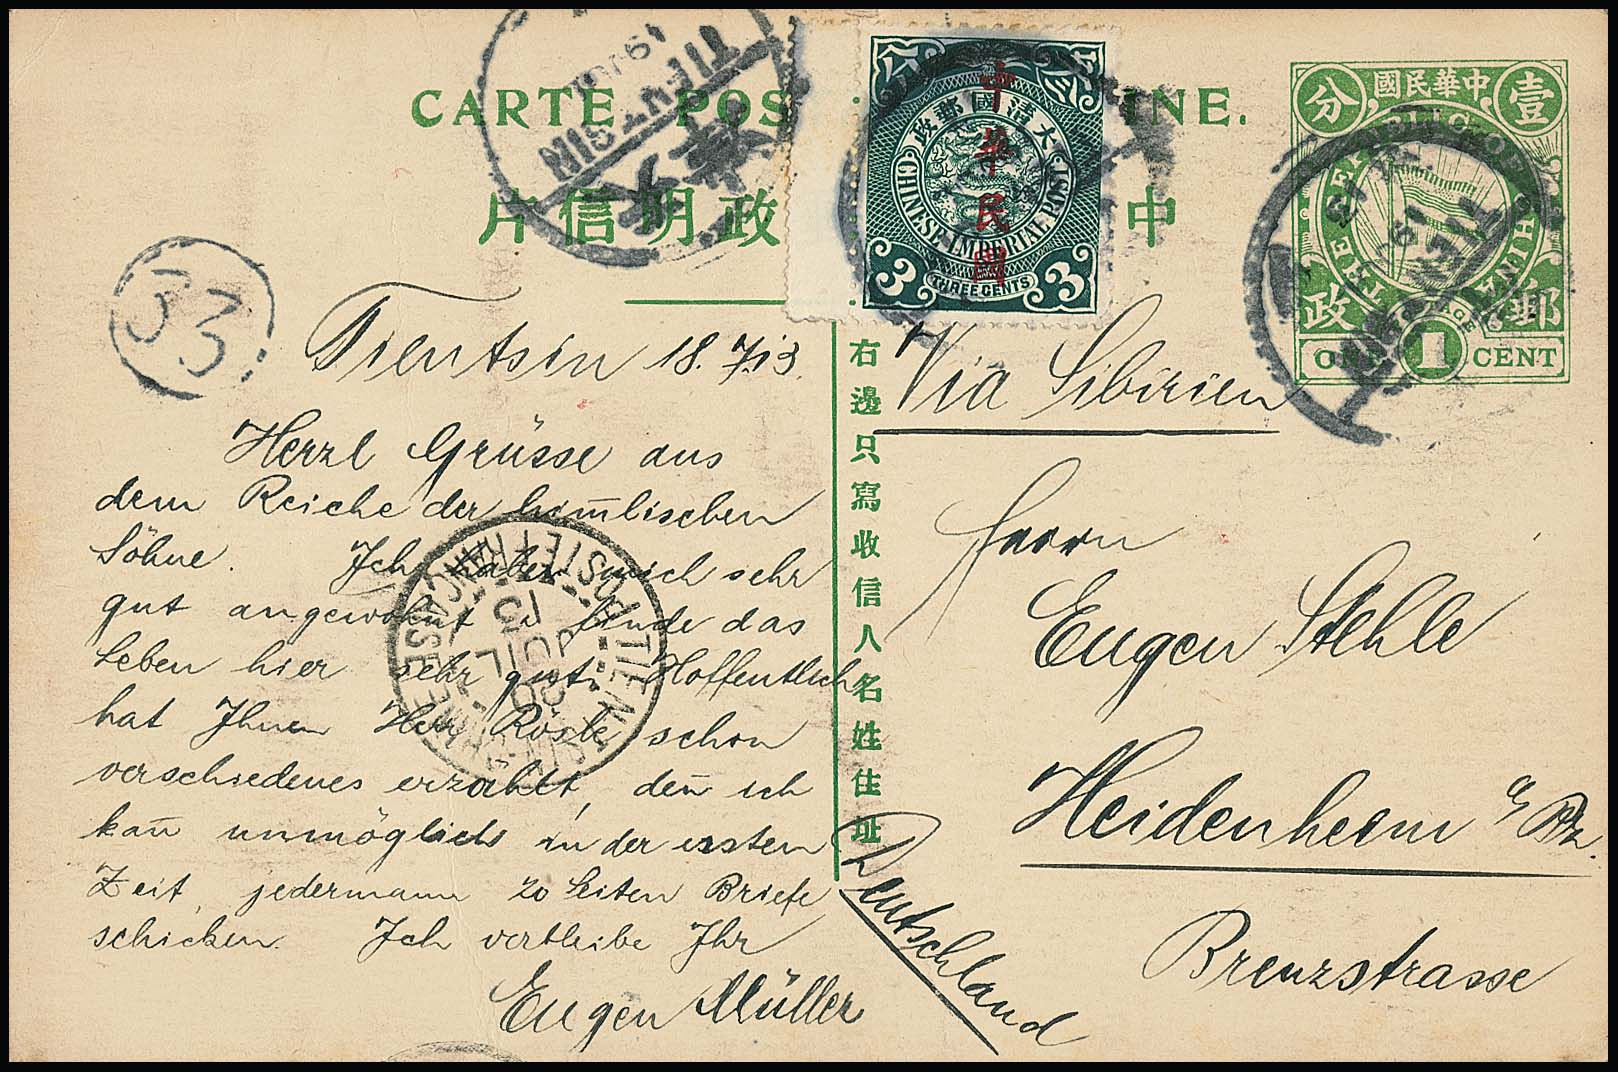 CARTE POS INE.
中 政明信片
TIENTSIN
大清國郵政
CHINESE IMPERIAL POST
中華民國
3 THREE CENTS 3
中華民國
壹 分
郵 政
ONE 1 CENT
33
右邊只寫收信人名姓住址
Tientsin 18.7.13.
Herzl Grüsse aus
dem Reiche der him̅lischen
Söhne. Ich habe mich sehr
gut angewöhnt u finde das
Leben hier sehr gut. Hoffentlich
hat Ihnen Herr Rösle schon
verschiedenes erzählt, den̅ ich
kan̅ unmöglich in der ersten
Zeit, jedermann 20 Seiten Briefe
schicken. Ich verbleibe Ihr
Eugen Müller
TIENTSIN POSTE FRANÇAISE
20 JUIL 13
Via Sibirien
Herrn
Eugen Stehle
Heidenheim a/ Brz.
Brenzstrasse
Deutschland